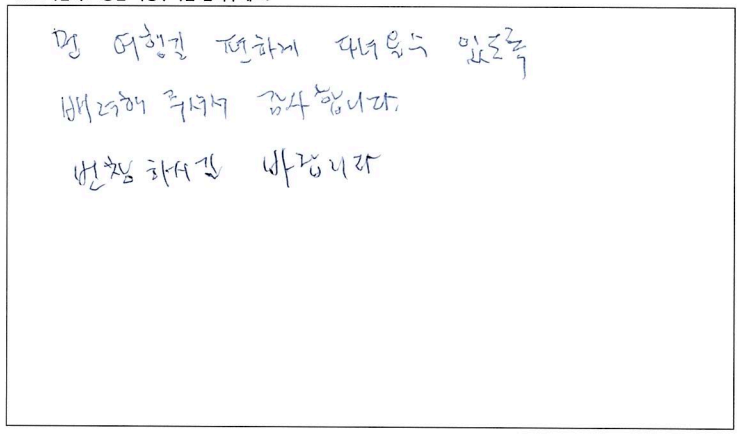 먼 여행길 편하게 다녀올수 있도록
배려해 주셔서 감사합니다.
번창하시길 바랍니다